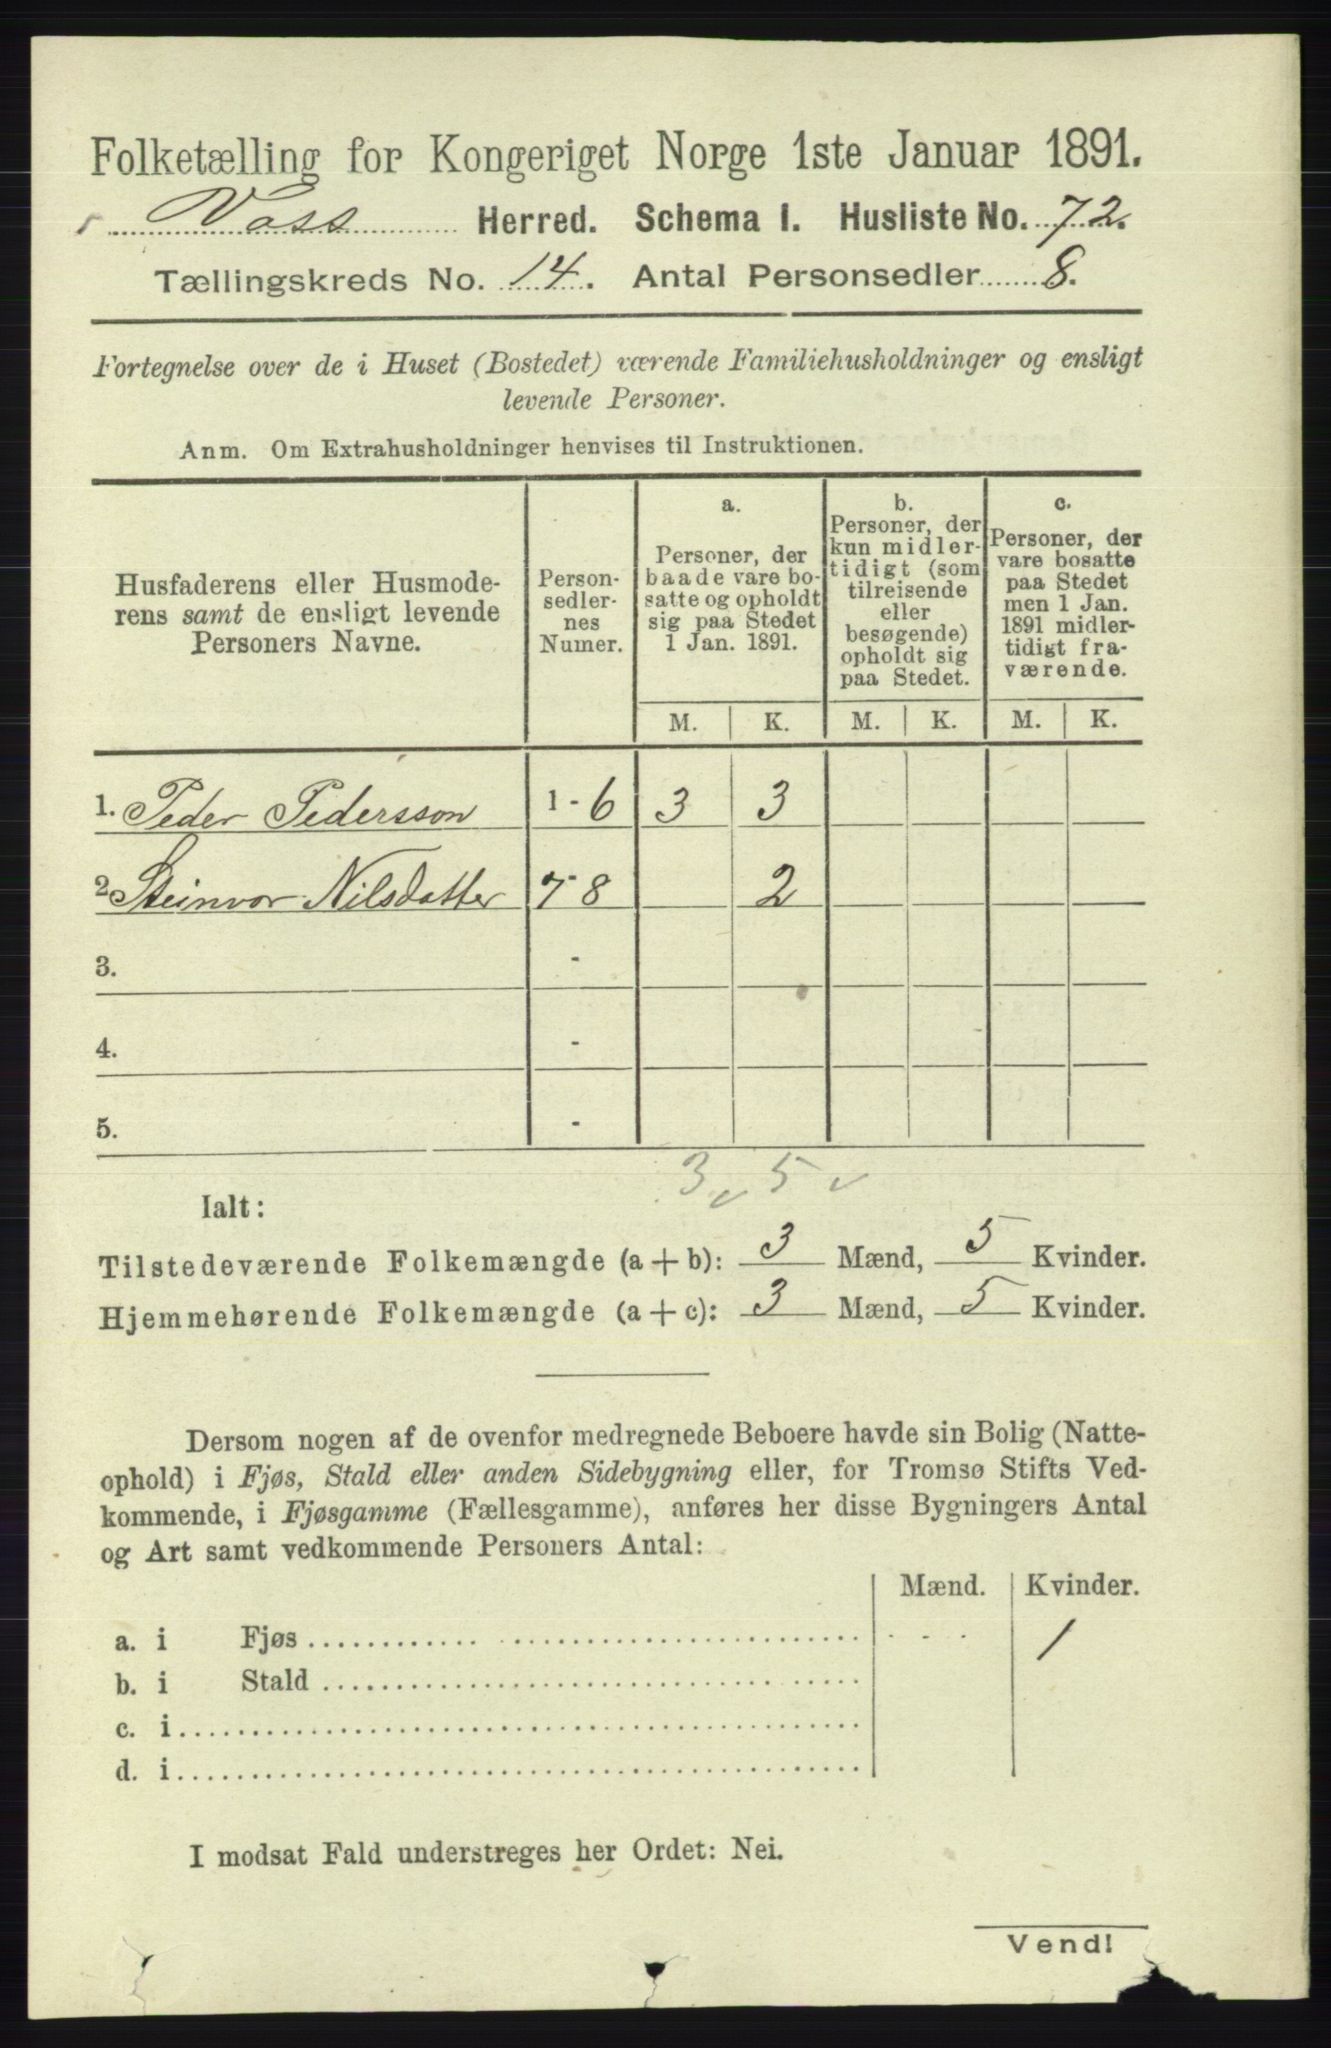 Folketælling for Kongeriget Norge 1ste Januar 1891.
Voss Herred. Schema I. Husliste No. 72.
Tællingskreds No. 14. Antal Personsedler 8.
Fortegnelse over de i Huset (Bostedet) værende Familiehusholdninger og ensligt
levende Personer.
Anm. Om Extrahusholdninger henvises til Instruktionen.
Husfaderens eller Husmode-
rens samt de ensligt levende
Personers Navne.
Person-
sedler-
nes
Numer.
a.
Personer, der
baade vare bo-
satte og opholdt
sig paa Stedet
1 Jan. 1891.
b.
Personer, der
kun midler-
tidigt (som
tilreisende
eller
besøgende)
opholdt sig
paa Stedet.
c.
Personer, der
vare bosatte
paa Stedet
men 1 Jan.
1891 midler-
tidigt fra-
værende.
M. K. M. K. M. K.
1. Peder Pedersson 1 - 6 3 3
2 Steinvor Nilsdatter 7 - 8 2
3. -
4. -
5. -
3 5
Ialt:
Tilstedeværende Folkemængde (a + b): 3 Mænd, 5 Kvinder.
Hjemmehørende Folkemængde (a + c): 3 Mænd, 5 Kvinder.
Dersom nogen af de ovenfor medregnede Beboere havde sin Bolig (Natte-
ophold) i Fjøs, Stald eller anden Sidebygning eller, for Tromsø Stifts Ved-
kommende, i Fjøsgamme (Fællesgamme), anføres her disse Bygningers Antal
og Art samt vedkommende Personers Antal:
Mænd. Kvinder.
a. i Fjøs 1
b. i Stald
c. i
d. i
I modsat Fald understreges her Ordet: Nei.
Vend!